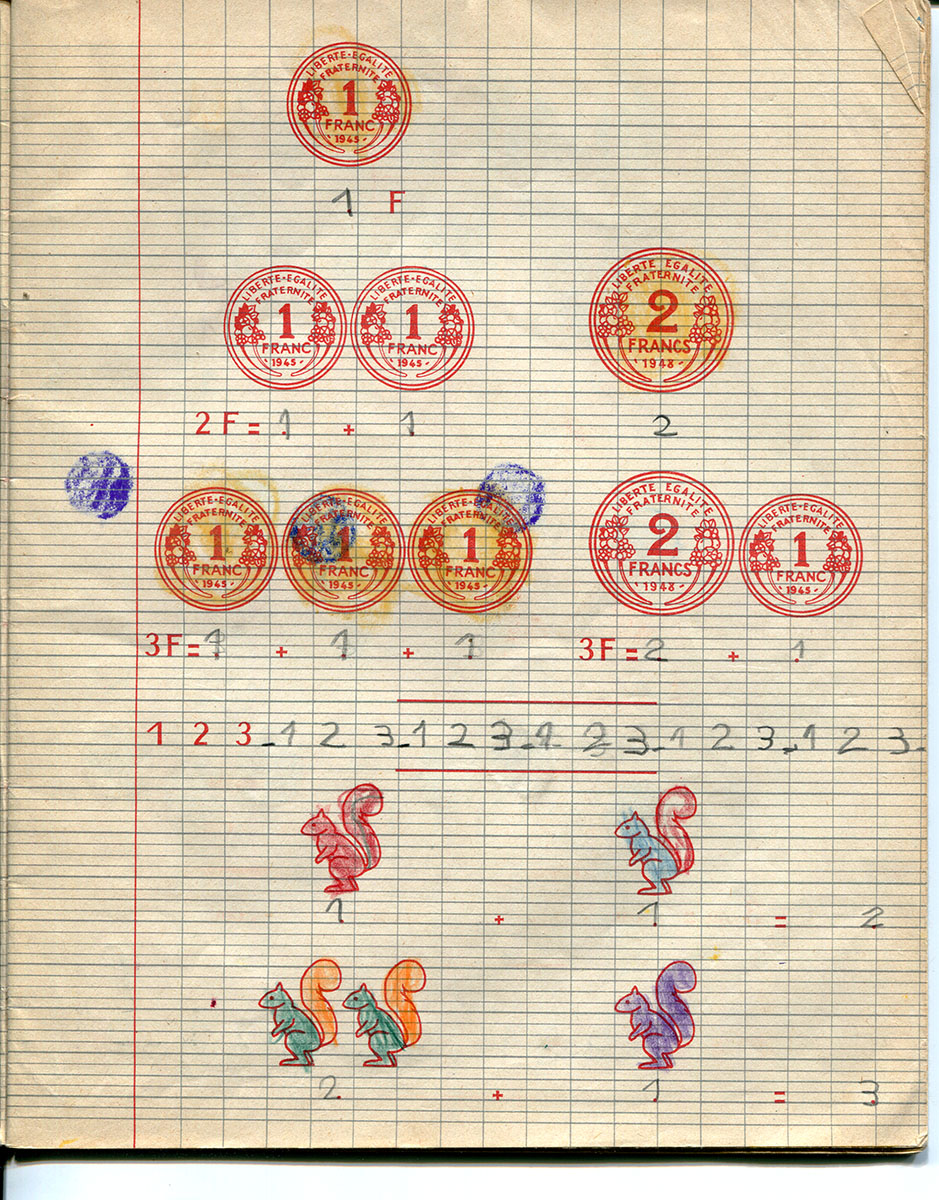 LIBERTE-EGALITE
FRATERNITE
1
FRANC
1945
1 F
LIBERTE-EGALITE LIBERTE-EGALITE LIBERTE EGALITE
FRATERNITE FRATERNITE FRATERNITE
1 1 2
FRANC FRANC FRANCS
1945 1945 1948
2 F = 1 + 1 2
LIBERTE-EGALITE LIBERTE-EGALITE LIBERTE-EGALITE LIBERTE EGALITE LIBERTE-EGALITE
FRATERNITE FRATERNITE FRATERNITE FRATERNITE FRATERNITE
1 1 1 2 1
FRANC FRANC FRANC FRANCS FRANC
1945 1945 1945 1948 1945
3F = 1 + 1 + 1 3F = 2 + 1
1 2 3 - 1 2 3 - 1 2 3 - 1 2 3 - 1 2 3 - 1 2 3 -
1 + 1 = 2
2 + 1 = 3